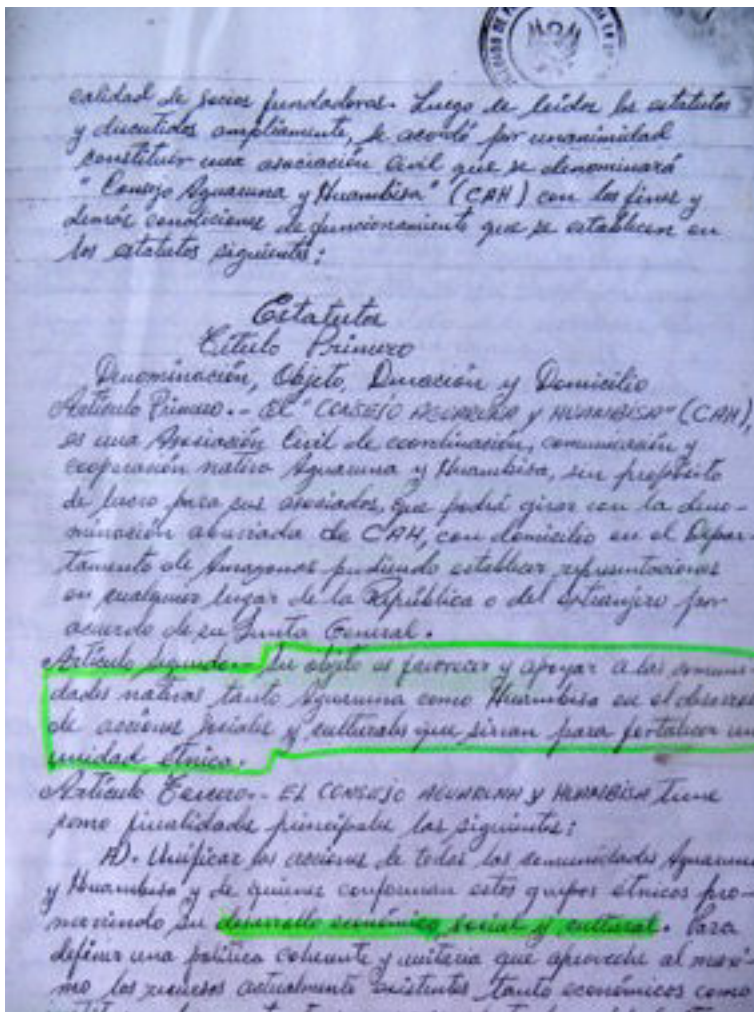 calidad de socios fundadores. Luego de leidos los estatutos
y discutidos ampliamente, se acordó por unanimidad
constituir una asociación civil que se denominará
"Consejo Aguaruna y Huambisa" (CAH) con los fines y
demás condiciones de funcionamiento que se establecen en
los estatutos siguientes:
Estatutos
Título Primero
Denominación, Objeto, Duración y Domicilio
Artículo Primero.- El "CONSEJO AGUARUNA Y HUAMBISA" (CAH),
es una Asociación Civil de coordinación, comunicación y
cooperación nativo Aguaruna y Huambisa, sin propósito
de lucro para sus asociados, que podrá girar con la deno-
minación abreviada de CAH, con domicilio en el Depar-
tamento de Amazonas pudiendo establecer representaciones
en cualquier lugar de la República o del extranjero por
acuerdo de su Junta General.
Artículo Segundo.- Su objeto es favorecer y apoyar a las comuni-
dades nativas tanto Aguaruna como Huambisa en el
de acciones sociales y culturales que sirvan para fortalecer
unidad étnica.
Artículo Tercero.- EL CONSEJO AGUARUNA Y HUAMBISA tiene
como finalidades principales las siguientes:
A). Unificar las acciones de todas las comunidades Aguaruna
y Huambisa y de quienes conforman estos grupos étnicos pro-
moviendo su desarrollo económico, social y cultural. Para
definir una política coherente y unitaria que aproveche al máxi-
mo los recursos actualmente existentes tanto económicos como